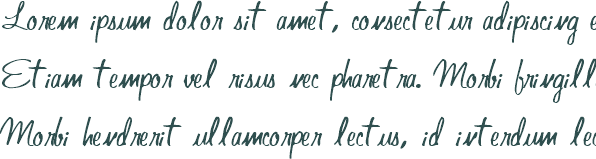 Lorem ipsum dolor sit amet, consectetur adipiscing e
Etiam tempor vel risus nec pharetra. Morbi fringill
Morbi hendrerit ullamcorper lectus, id interdum leo